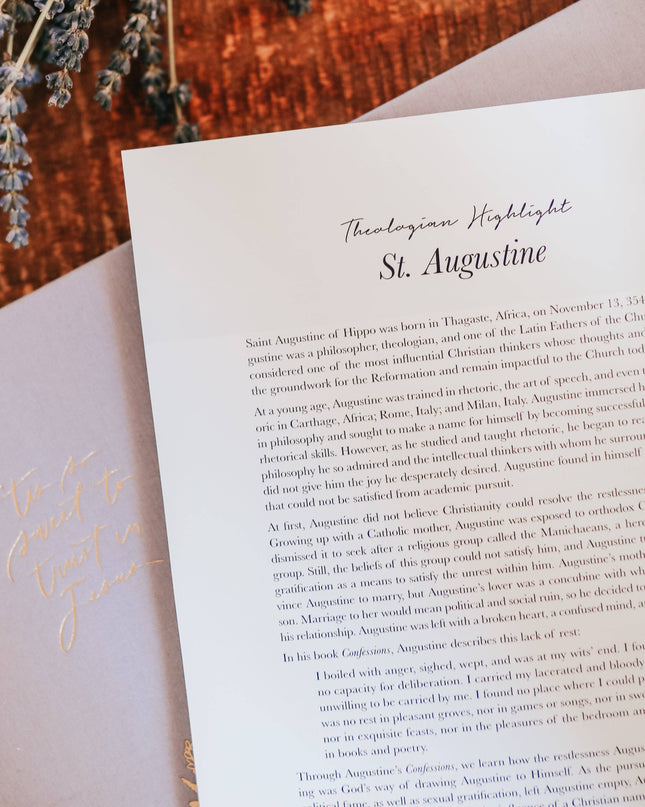 Theologian Highlight
St. Augustine
Saint Augustine of Hippo was born in Thagaste, Africa, on November 13, 354
gustine was a philosopher, theologian, and one of the Latin Fathers of the Chu
considered one of the most influential Christian thinkers whose thoughts and
the groundwork for the Reformation and remain impactful to the Church tod
At a young age, Augustine was trained in rhetoric, the art of speech, and even t
oric in Carthage, Africa; Rome, Italy; and Milan, Italy. Augustine immersed h
in philosophy and sought to make a name for himself by becoming successful
rhetorical skills. However, as he studied and taught rhetoric, he began to rea
philosophy he so admired and the intellectual thinkers with whom he surrou
did not give him the joy he desperately desired. Augustine found in himself
that could not be satisfied from academic pursuit.
At first, Augustine did not believe Christianity could resolve the restlessne
Growing up with a Catholic mother, Augustine was exposed to orthodox C
dismissed it to seek after a religious group called the Manichaeans, a here
group. Still, the beliefs of this group could not satisfy him, and Augustine t
gratification as a means to satisfy the unrest within him. Augustine's moth
vince Augustine to marry, but Augustine's lover was a concubine with wh
son. Marriage to her would mean political and social ruin, so he decided to
his relationship. Augustine was left with a broken heart, a confused mind, a
In his book Confessions, Augustine describes this lack of rest:
I boiled with anger, sighed, wept, and was at my wits' end. I fou
no capacity for deliberation. I carried my lacerated and bloody
unwilling to be carried by me. I found no place where I could p
was no rest in pleasant groves, nor in games or songs, nor in swe
nor in exquisite feasts, nor in the pleasures of the bedroom an
in books and poetry.
Through Augustine's Confessions, we learn how the restlessness Augus
ing was God's way of drawing Augustine to Himself. As the pursu
political fame, as well as sexual gratification, left Augustine empty, A
'tis so
sweet to
trust in
Jesus